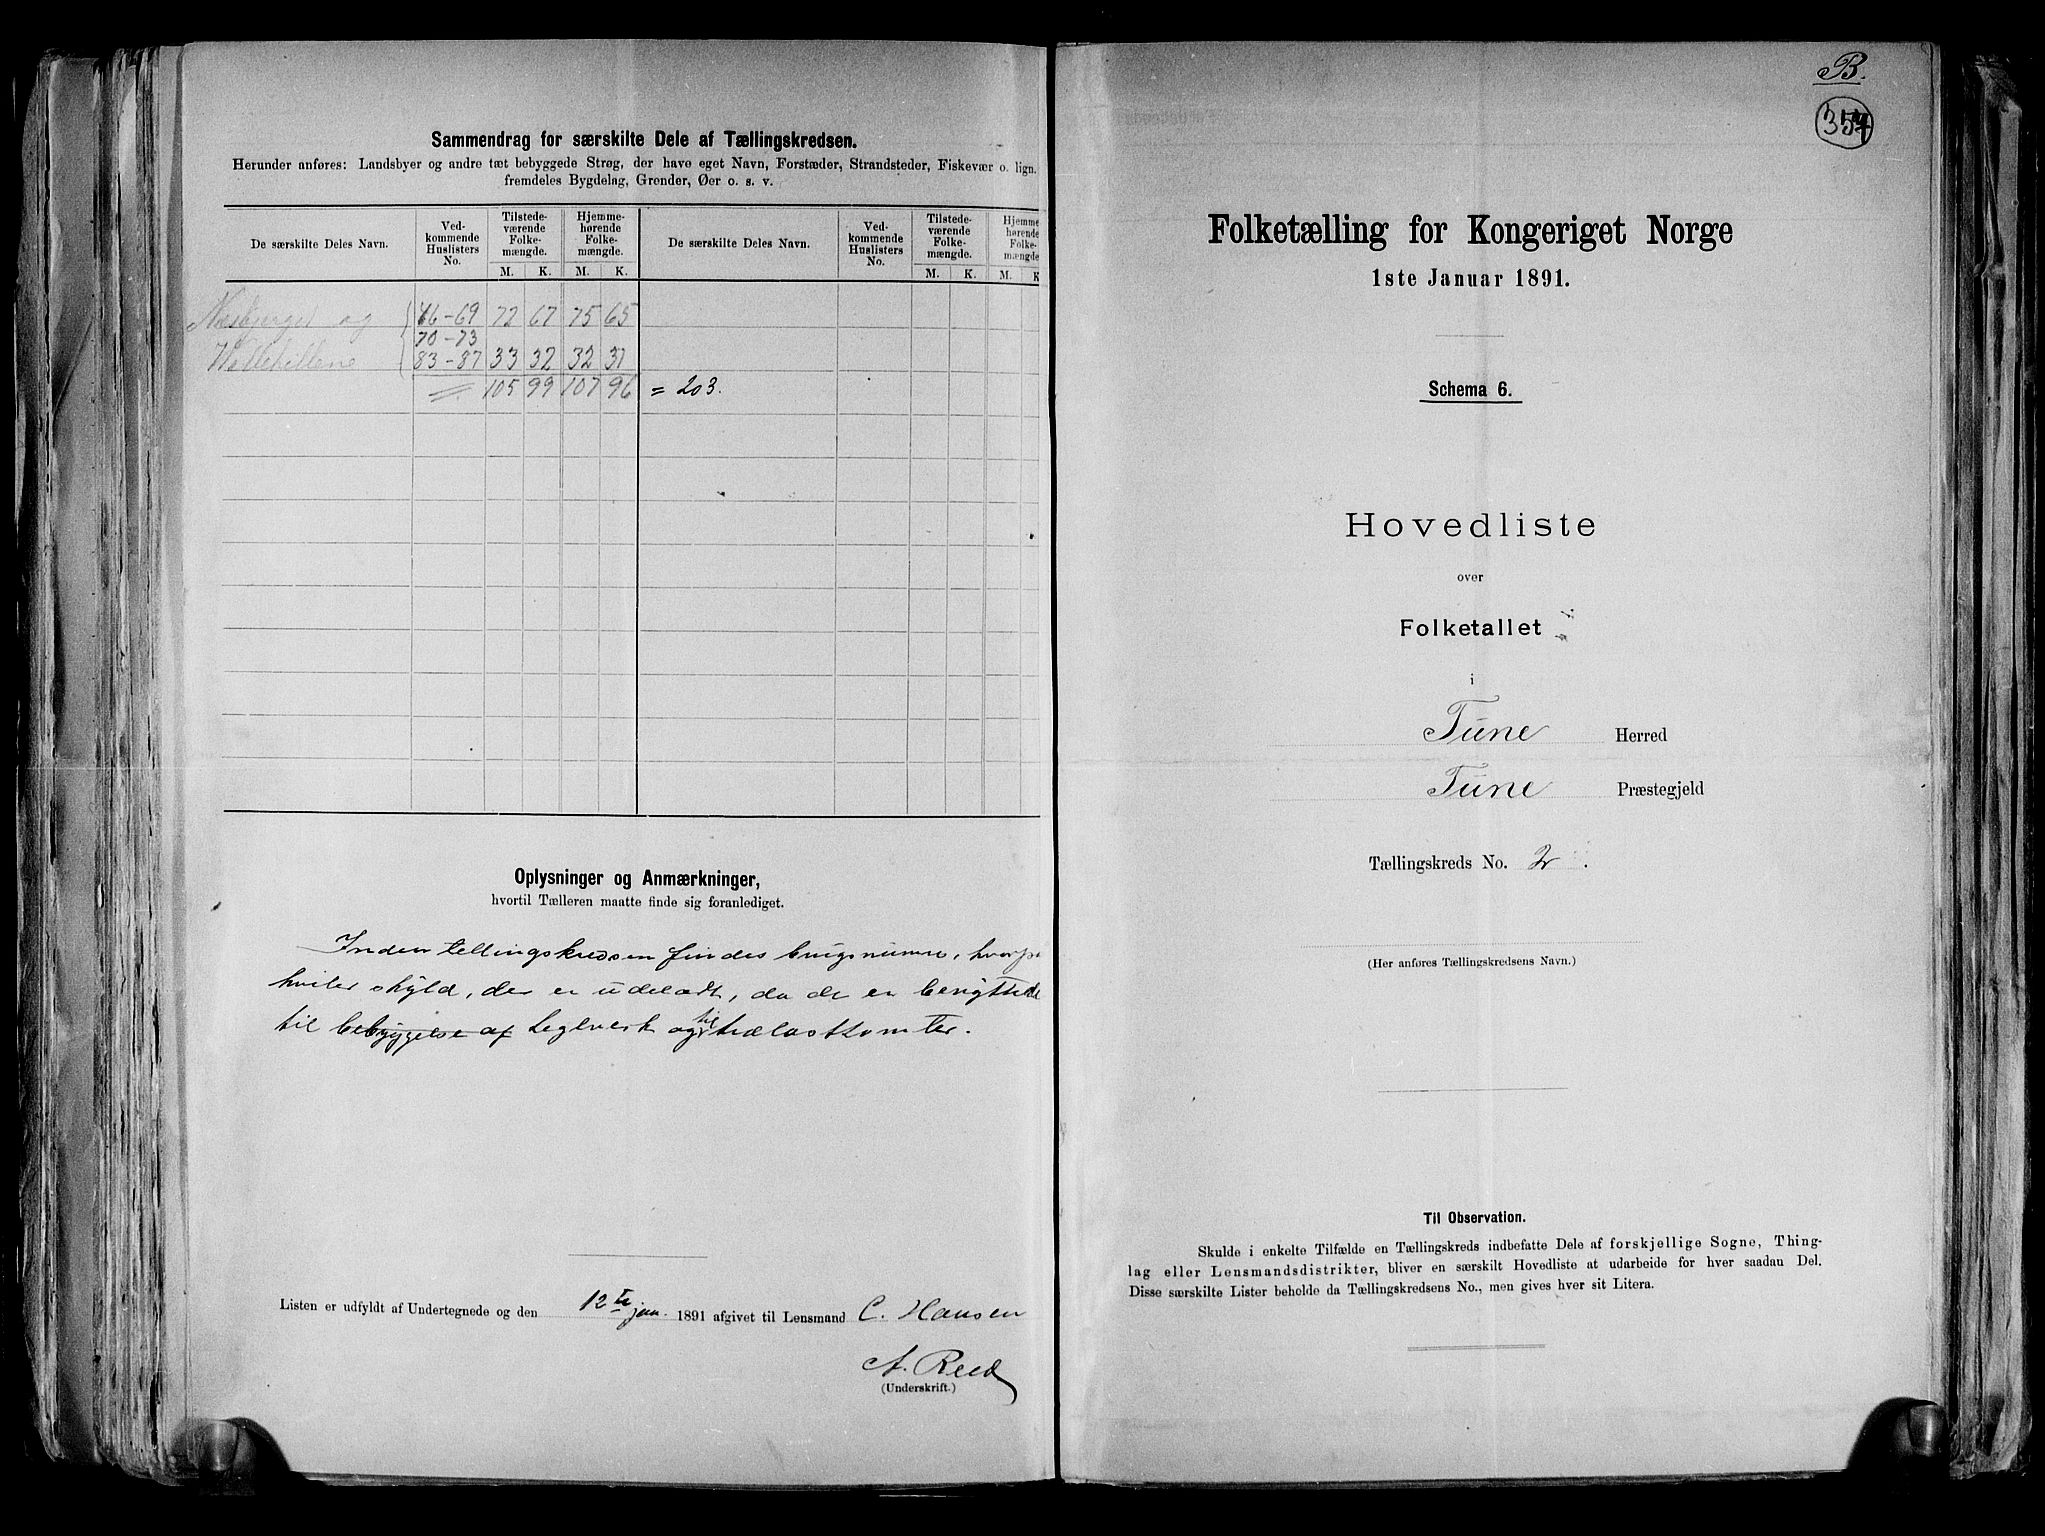 Sammendrag for særskilte Dele af Tællingskredsen.
Herunder anføres: Landsbyer og andre tæt bebyggede Strøg, der have eget Navn, Forstæder, Strandsteder, Fiskevær o. lign.
fremdeles Bygdelag, Grender, Øer o. s. v.
De særskilte Deles Navn. Ved-kommende Huslisters No. Tilstede-værende Folke-mængde. Hjemme-hørende Folke-mængde. De særskilte Deles Navn. Ved-kommende Huslisters No. Tilstede-værende Folke-mængde. Hjemme-hørende Folke-mængde
M. K. M. K. M. K. M. K
og 46-69 72 67 75 65
70-73
83-87 33 32 32 31
105 99 107 96 = 203.
Oplysninger og Anmærkninger,
hvortil Tælleren maatte finde sig foranlediget.
Inden tellingskredsen findes brugsnumre, hvorpa
hviler skyld, der er udeladt, da de er benyttede
til bebyggelse af teglverk og til trælasttomter.
Listen er udfyldt af Undertegnede og den 12te jan. 1891 afgivet til Lensmand C. Hansen
A. Reed
(Underskrift.)
B.
354
Folketælling for Kongeriget Norge
1ste Januar 1891.
Schema 6.
Hovedliste
over
Folketallet
i
Tune Herred
Tune Præstegjeld
Tællingskreds No. 2.
(Her anføres Tællingskredsens Navn.)
Til Observation.
Skulde i enkelte Tilfælde en Tællingskreds indbefatte Dele af forskjellige Sogne, Thing-
lag eller Lensmandsdistrikter, bliver en særskilt Hovedliste at udarbeide for hver saadan Del.
Disse særskilte Lister beholde da Tællingskredsens No., men gives hver sit Litera.